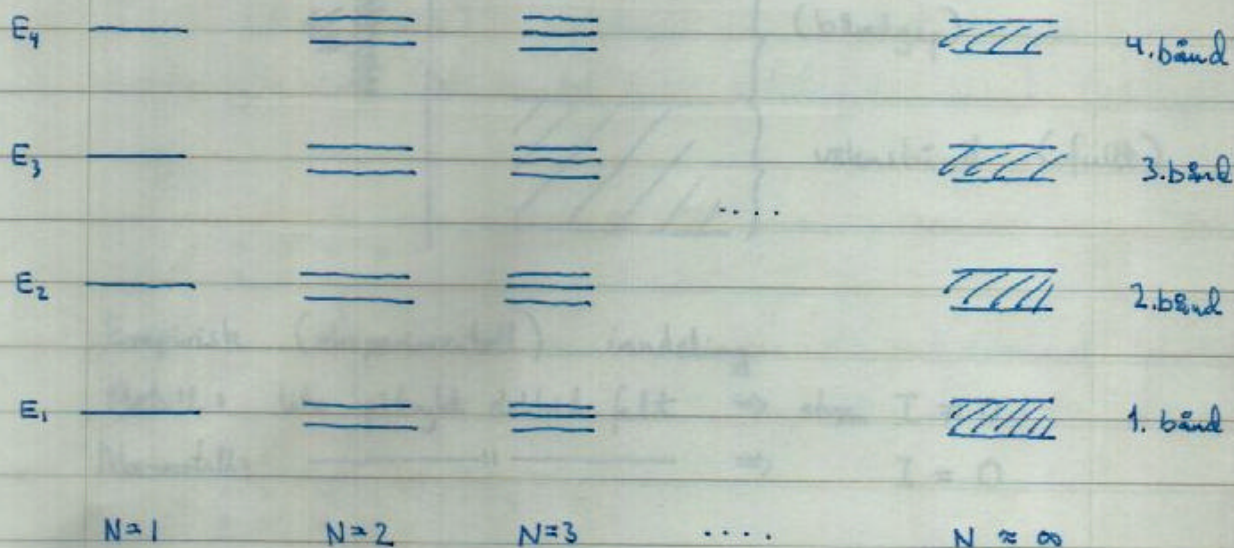 E₄ 4. bånd
E₃ 3. bånd
....
E₂ 2. bånd
E₁ 1. bånd
N=1 N=2 N=3 .... N ≈ ∞